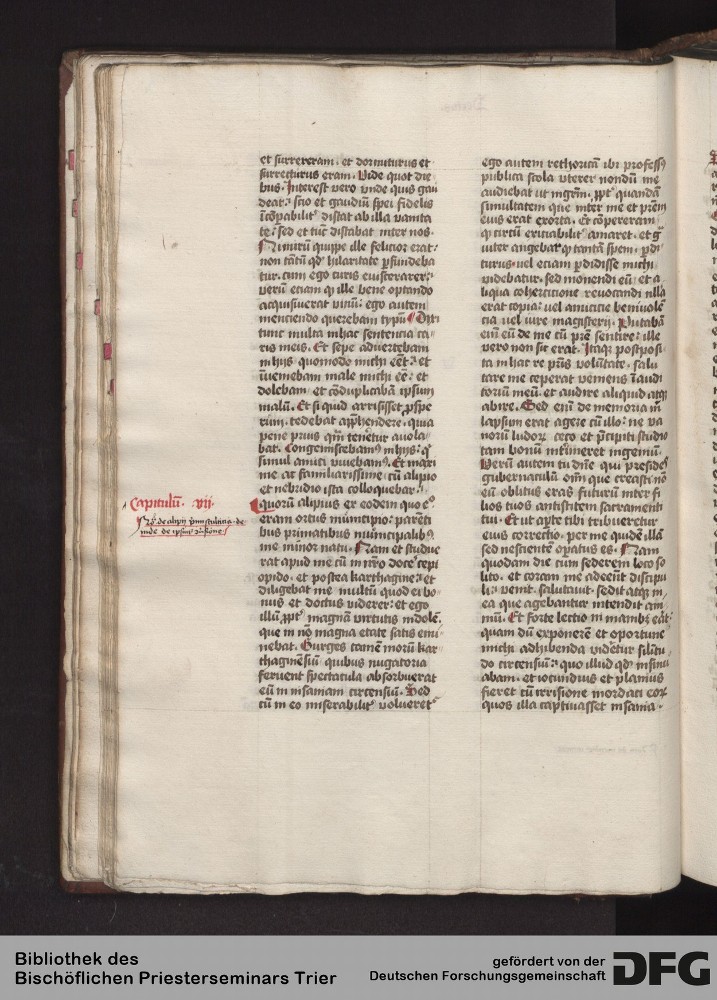 et surrexeram · et dormiturus et
surrecturus eram · Vide quot die
bus · Interest vero vnde quis gau
deat · scio et gaudiū spei fidelis
īcōpabilit᷑ distat ab illa vanita
te : sed et tūc distabat inter nos ·
Nimirū quippe ille felicior erat :
non tātū qd᷑ hilaritate ꝑfundeba
tur · cum ego curis euiscerarer :
verū etiam ꝙ ille bene optando
acquisiuerat vinū : ego autem
menciendo querebam typū Dixi
tunc multa in hac sentencia ca
ris meis · Et sepe aduertebam
in hijs quomodo michi eēt : et
īueniebam male michi eē : et
dolebam et cōduplicabā ipsum
malū · Et si quid arrisisset ꝓspe
rum · tedebat apprehendere · quia
pene prius qm̄ teneretur auola
bat · Congemiscebam᷒ in hijs : q̄
simul amici viuebam᷒ · Et maxi
me ac familiarissime cū alipio
et nebridio ista colloquebar ·
Capitulū · vij ·
Quorū alipius ex eodem quo e᷒
eram ortus municipio · parēti
bus primatibus municipalib᷒
me minor natu · Nam et studue
rat apud me cū in nr̄o doce᷑ cepi
opido · et postea karthagine : et
diligebat me multū quod ei bo
nus et doctus viderer : et ego
illū ꝓpt᷑ magnā virtutis indolē ·
que in nō magna etate satis emi
nebat · Gurges tamē morū kar
thaginēsiū · quibus nugatoria
feruent spectacula absorbuerat
eū in insaniam circensiū · Sed
cū in eo miserabilit᷑ volueret᷑
ego autem rethoricā ibi professꝰ
publica scola vterer nondū me
audiebat ut mgr̄m · ꝓpt᷑ quandā
simultatem que inter me et pr̄em
eius erat exorta · Et cōpereram ·
ꝙ circū exitiabilit᷑ amaret · et g᷑
uiter angebar ꝙ tantā spem · ꝑdi
turus · uel eciam ꝑdidisse michi
videbatur · sed monendi eū · et a
liqua cohercitione reuocandi nlla
erat copia : uel amicitie beniuolē
cia uel iure magisterij · Putabā
em̄ eū de me cū pr̄e sentire : ille
vero non sic erat · Itaqꝫ postposi
ta in hac re pr̄is volūtate · salu
tare me ceperat veniens ī audi
toriū meū · et audire aliquid atqꝫ
abire · Sed em̄ de memoria m̄
lapsum erat agere cū illo : ne va
norū ludorꝫ ceco et p̄cipiti studio
tam bonū int᷑imeret ingeniū ·
Verū autem tu dn̄e qui presides
gubernaculis om̄ que creasti nō
eū oblitus eras futurū inter fi
lios tuos antistitem sacramenti
tui · Et ut apte tibi tribueretur
eius correctio · per me quidē illā
sed nesciente oꝑatus es · Nam
quodam die cum sederem loco so
lito · et coram me adeēnt discipu
li : venit · salutauit · sedit atqꝫ in
ea que agebantur intendit ani
mū · Et forte lectio in manibꝫ erāt :
quam dū exponerem et oportune
michi adhibenda videretur silitu
do circensiū : quo illud qd᷑ insinu
abam · et iocundius et planius
fieret cū irrisione mordaci eorꝫ
quos illa captiuasset insania ·
Bibliothek des
Bischöflichen Priesterseminars Trier
gefördert von der
Deutschen Forschungsgemeinschaft
DFG